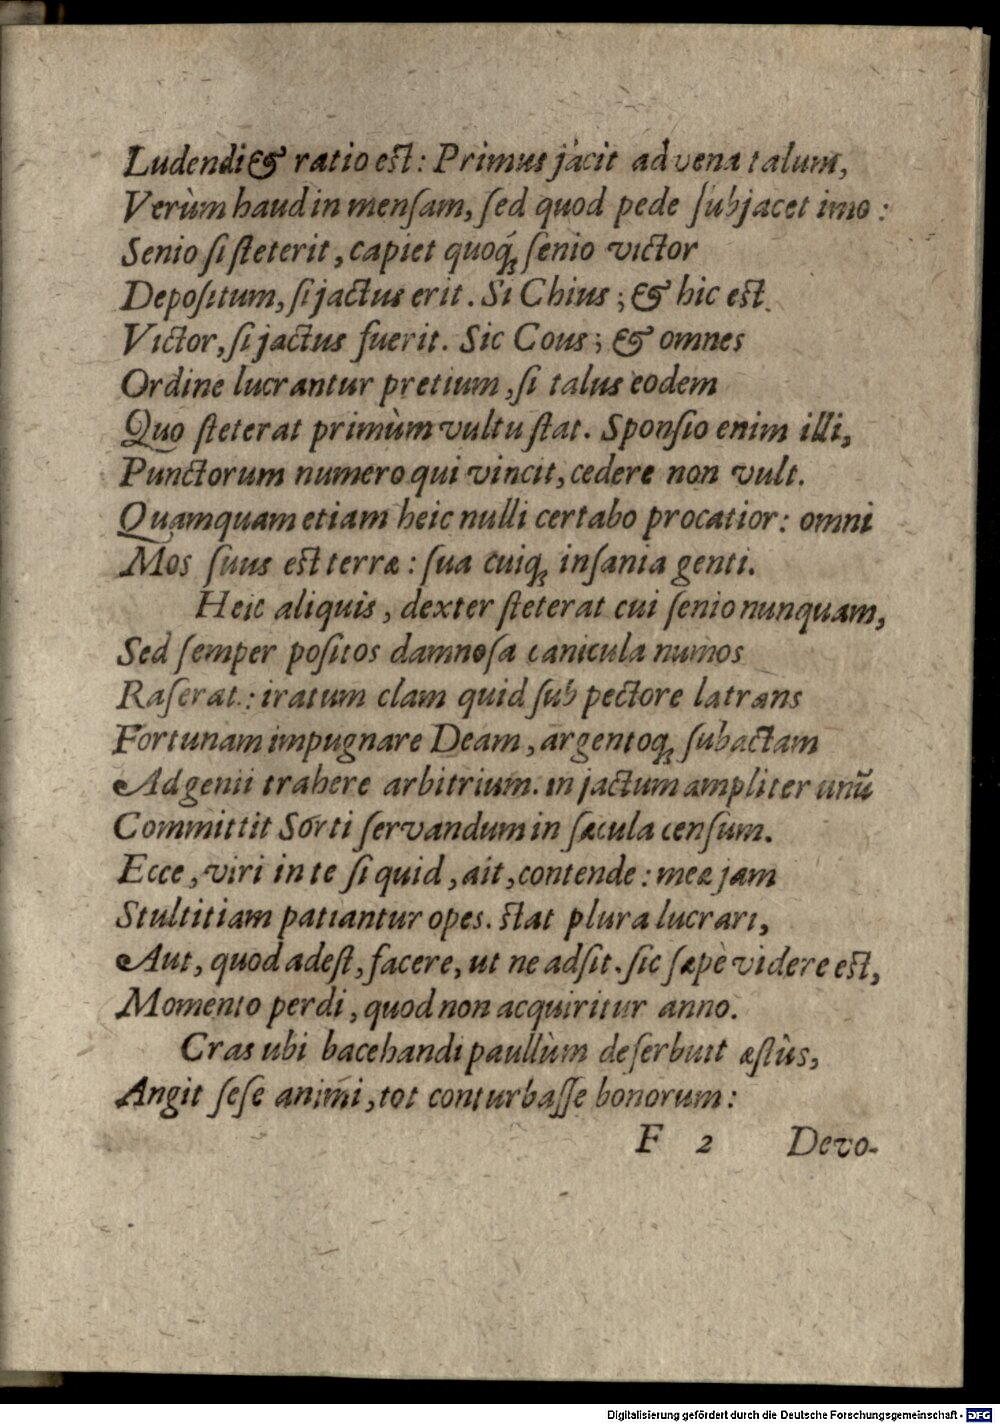 Ludendi & ratio est: Primus jacit advena talum,
Verùm haud in mensam, sed quod pede subjacet imo:
Senio si steterit, capiet quoq́; senio victor
Depositum, si jactus erit. Si Chius; & hic est
Victor, si jactus fuerit. Sic Cous; & omnes
Ordine lucrantur pretium, si talus eodem
Quo steterat primùm vultu stat. Sponsio enim illi,
Punctorum numero qui vincit, cedere non vult.
Quamquam etiam heic nulli certabo procatior: omni
Mos suus est terræ: sua cuiq; insania genti.
Heic aliquis, dexter steterat cui senio nunquam,
Sed semper positos damnosa canicula numos
Raserat: iratum clam quid sub pectore latrans
Fortunam impugnare Deam, argentoq; subactam
Ad genii trahere arbitrium. in jactum ampliter unū
Committit Sorti servandum in sæcula censum.
Ecce, viri in te si quid, ait, contende: meæ jam
Stultitiam patiantur opes. stat plura lucrari,
Aut, quod adest, facere, ut ne adsit. sic sæpè videre est,
Momento perdi, quod non acquiritur anno.
Cras ubi bacchandi paullùm deferbuit æstùs,
Angit sese animi, tot conturbasse bonorum:
F 2 Devo-
Digitalisierung gefördert durch die Deutsche Forschungsgemeinschaft - DFG